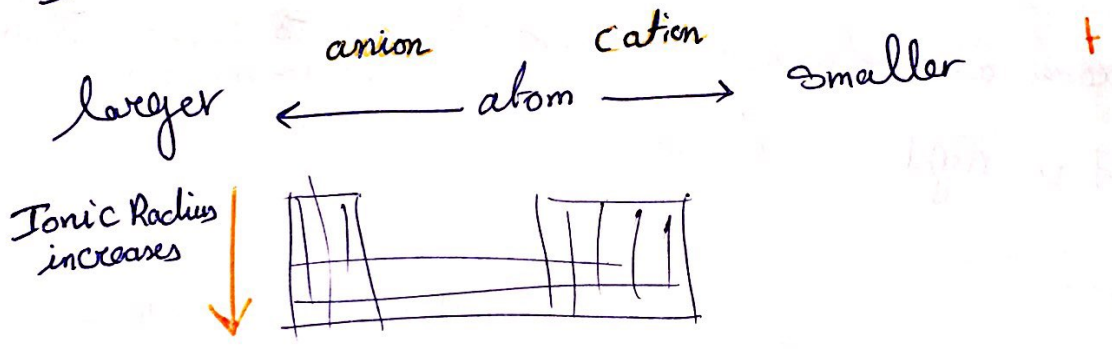 anion cation
larger ← atom → smaller
Ionic Radius
increases